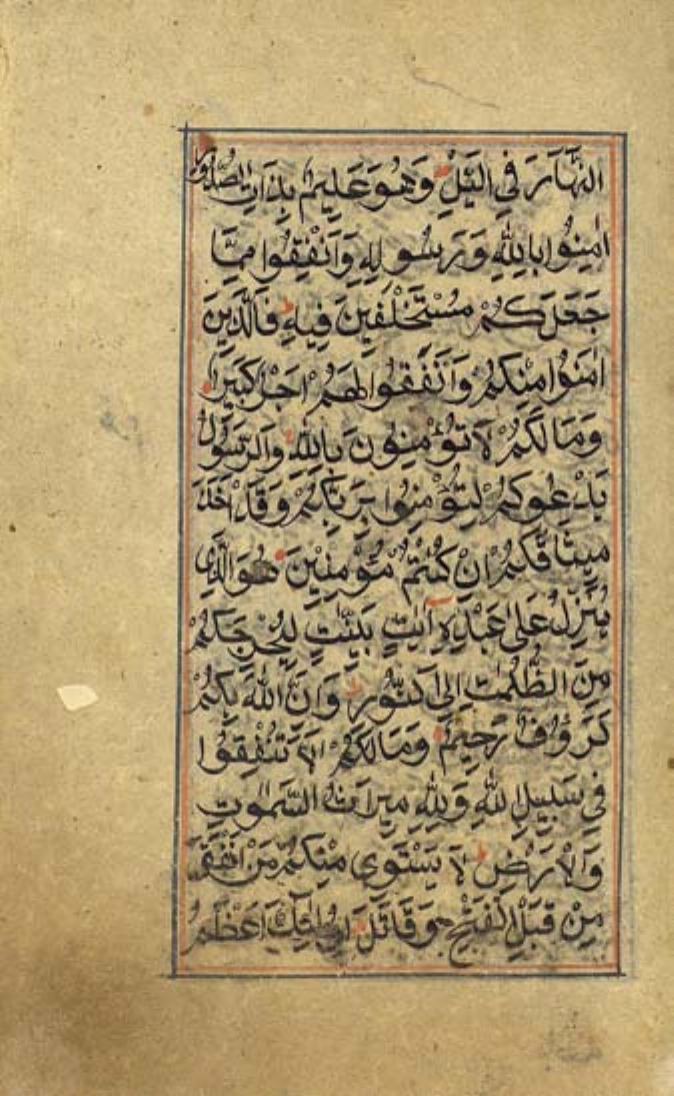 النَّهَارَ فِي الَّيْلِ وَهُوَ عَلِيمٌ بِذَاتِ الصُّدُورِ
اٰمِنُوا بِاللهِ وَرَسُولِهِ وَاَنْفِقُوا مِمَّا
جَعَلَكُمْ مُسْتَخْلَفِينَ فِيهِ فَالَّذِينَ
اٰمَنُوا مِنْكُمْ وَاَنْفَقُوا لَهُمْ اَجْرٌ كَبِيرٌ
وَمَا لَكُمْ لَا تُؤْمِنُونَ بِاللهِ وَالرَّسُولُ
يَدْعُوكُمْ لِتُؤْمِنُوا بِرَبِّكُمْ وَقَدْ اَخَذَ
مِيثَاقَكُمْ اِنْ كُنْتُمْ مُؤْمِنِينَ هُوَ الَّذِي
يُنَزِّلُ عَلٰى عَبْدِهِ اٰيٰتٍ بَيِّنٰتٍ لِيُخْرِجَكُمْ
مِنَ الظُّلُمٰتِ اِلَى النُّورِ وَاِنَّ اللهَ بِكُمْ
لَرَؤُفٌ رَحِيمٌ وَمَا لَكُمْ اَلَّا تُنْفِقُوا
فِي سَبِيلِ اللهِ وَلِلهِ مِيرَاثُ السَّمٰوٰتِ
وَالْاَرْضِ لَا يَسْتَوِي مِنْكُمْ مَنْ اَنْفَقَ
مِنْ قَبْلِ الْفَتْحِ وَقَاتَلَ اُولٰئِكَ اَعْظَمُ